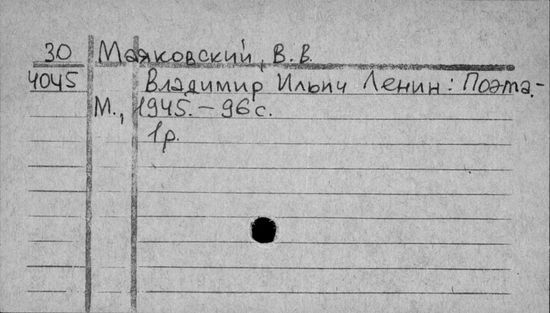 30 Маяковский, В. В.
4045 Владимир Ильич Ленин: Поэта.-
М., 1945. – 96 с.
1р.